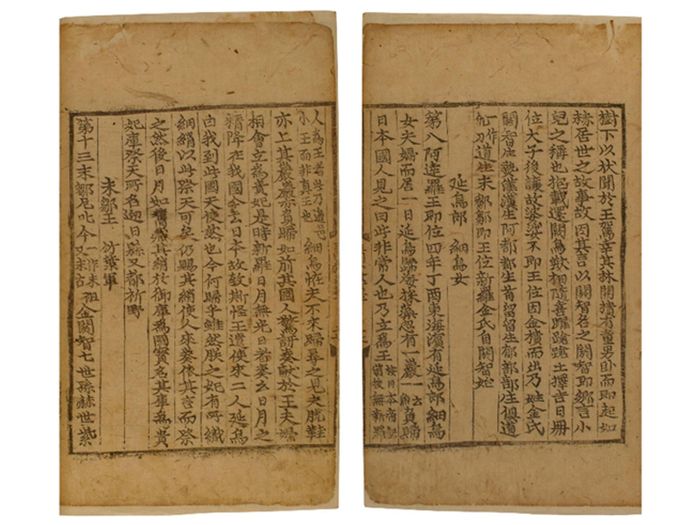 樹下以狀聞於王駕幸其林開樻有童男卧而即起如
赫居世之故事故因其言以閼智名之閼智即郷言小
兒之稱也抱載還闕鳥獸相隨喜躍蹌蹌土擇吉日冊
位大子後讓故婆娑不即王位因金樻而出乃姓金氏
閼智生熱漢漢生阿都都生首留留生郁部部生俱道
一作仇刀道生未鄒鄒即王位新羅金氏自閼智始
延烏郎 細烏女
第八阿達羅王即位四年丁酉東海濵有延烏郎細烏
女夫婦而居一日延烏歸海採藻忽有一巖一云一魚負歸
日本國人見之曰此非常人也乃立為王按日本帝記前後無新羅
人為王者此乃邉邑小王而非真王也細烏怪夫不來歸尋之見夫脫鞋
亦上其巖巖亦負歸如前其國人驚訝奏獻於王夫婦
相會立為貴妃是時新羅日月無光日者奏云日月之
精降在我國今去日本故致斯怪王遣使來二人延烏
曰我到此國天使然也今何歸乎雖然朕之妃有所織
細綃以此祭天可矣仍賜其綃使人來奏依其言而祭
之然後日月如舊藏其綃於御庫為國寳名其庫為貴
妃庫祭天所名迎日縣又都祈野
未鄒王 竹葉軍
第十三未鄒尼叱今一作未祖又未古金閼智七世孫赫世紫